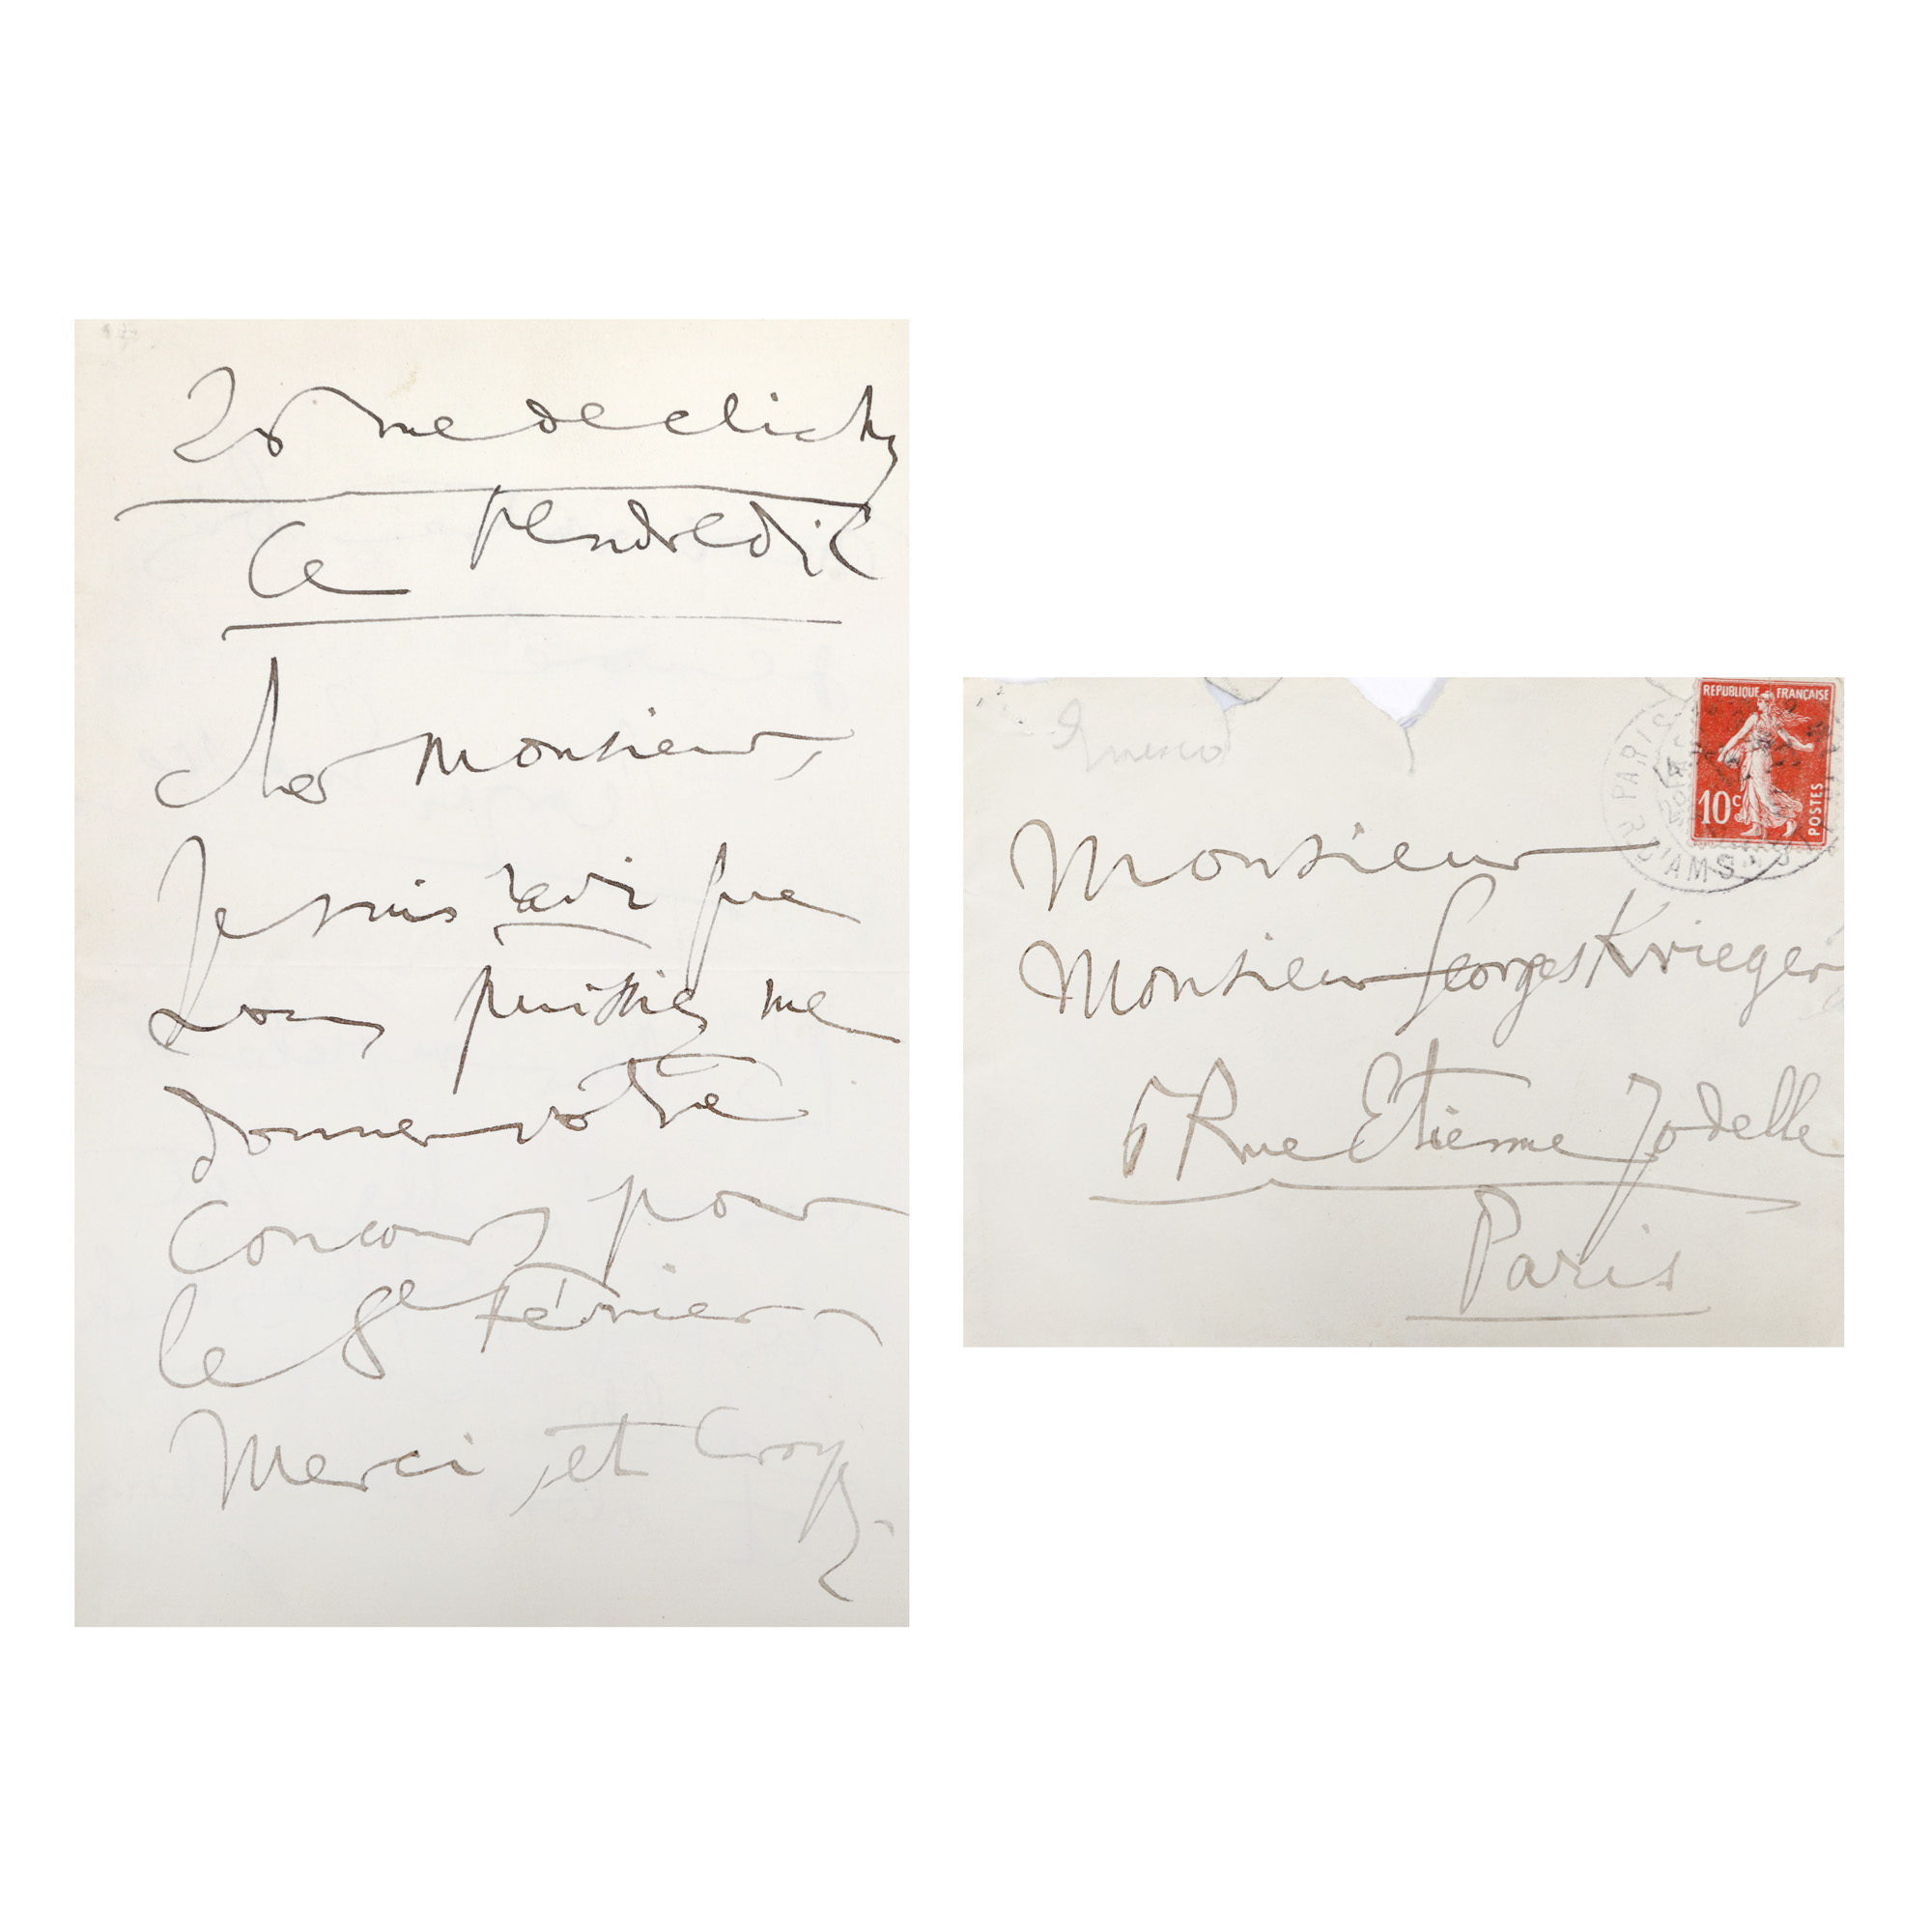 26 rue de clichy
Ce Vendredi
cher Monsieur,
Je suis ravi que
vous puissiez me
donner votre
concours pour
le 8e Février
Merci et Croyez
REPUBLIQUE FRANÇAISE
10c
POSTES
PARIS
Monsieur
Monsieur Georges Krieger
6 Rue Etienne Jodelle
Paris